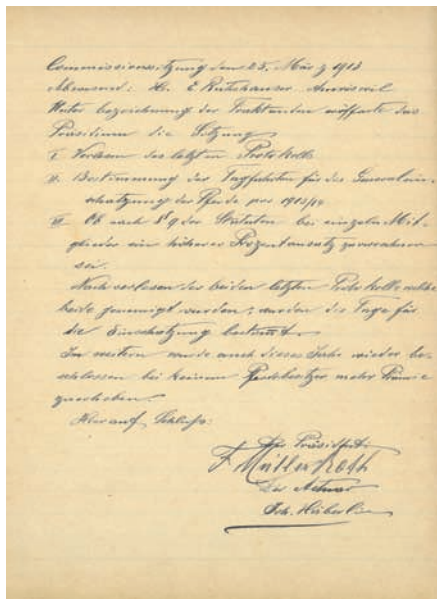 Commissionssitzung den 25. März 1913
Abwesend: H. E. Rutishauser Amriswil
Unter bezeichnung der Traktanden eröffnete das
Präsidium die Sitzung
I. Verlesen des letzten Protokolls
II. Bestimmung der Tagfahrten für die Generalein-
schatzung der Pferde pro 1913/14
III. Ob nach § 9 der Statuten bei einzeln Mit-
glieder ein höherer Prozentansatz
sei.
Nach verlesen der beiden letzten Protokolle welche
beide genemigt wurden; wurden die Tage für
die Einschatzung bestimt.
Im weitern wurde auch dieses Jahr wieder be-
schlossen bei keinem Pferdebesitzer mehr Prämie
zu erheben.
Hierauf Schluss.
Der Präsident:
F. Müller Roth
Der Actuar
Joh. Häberlin